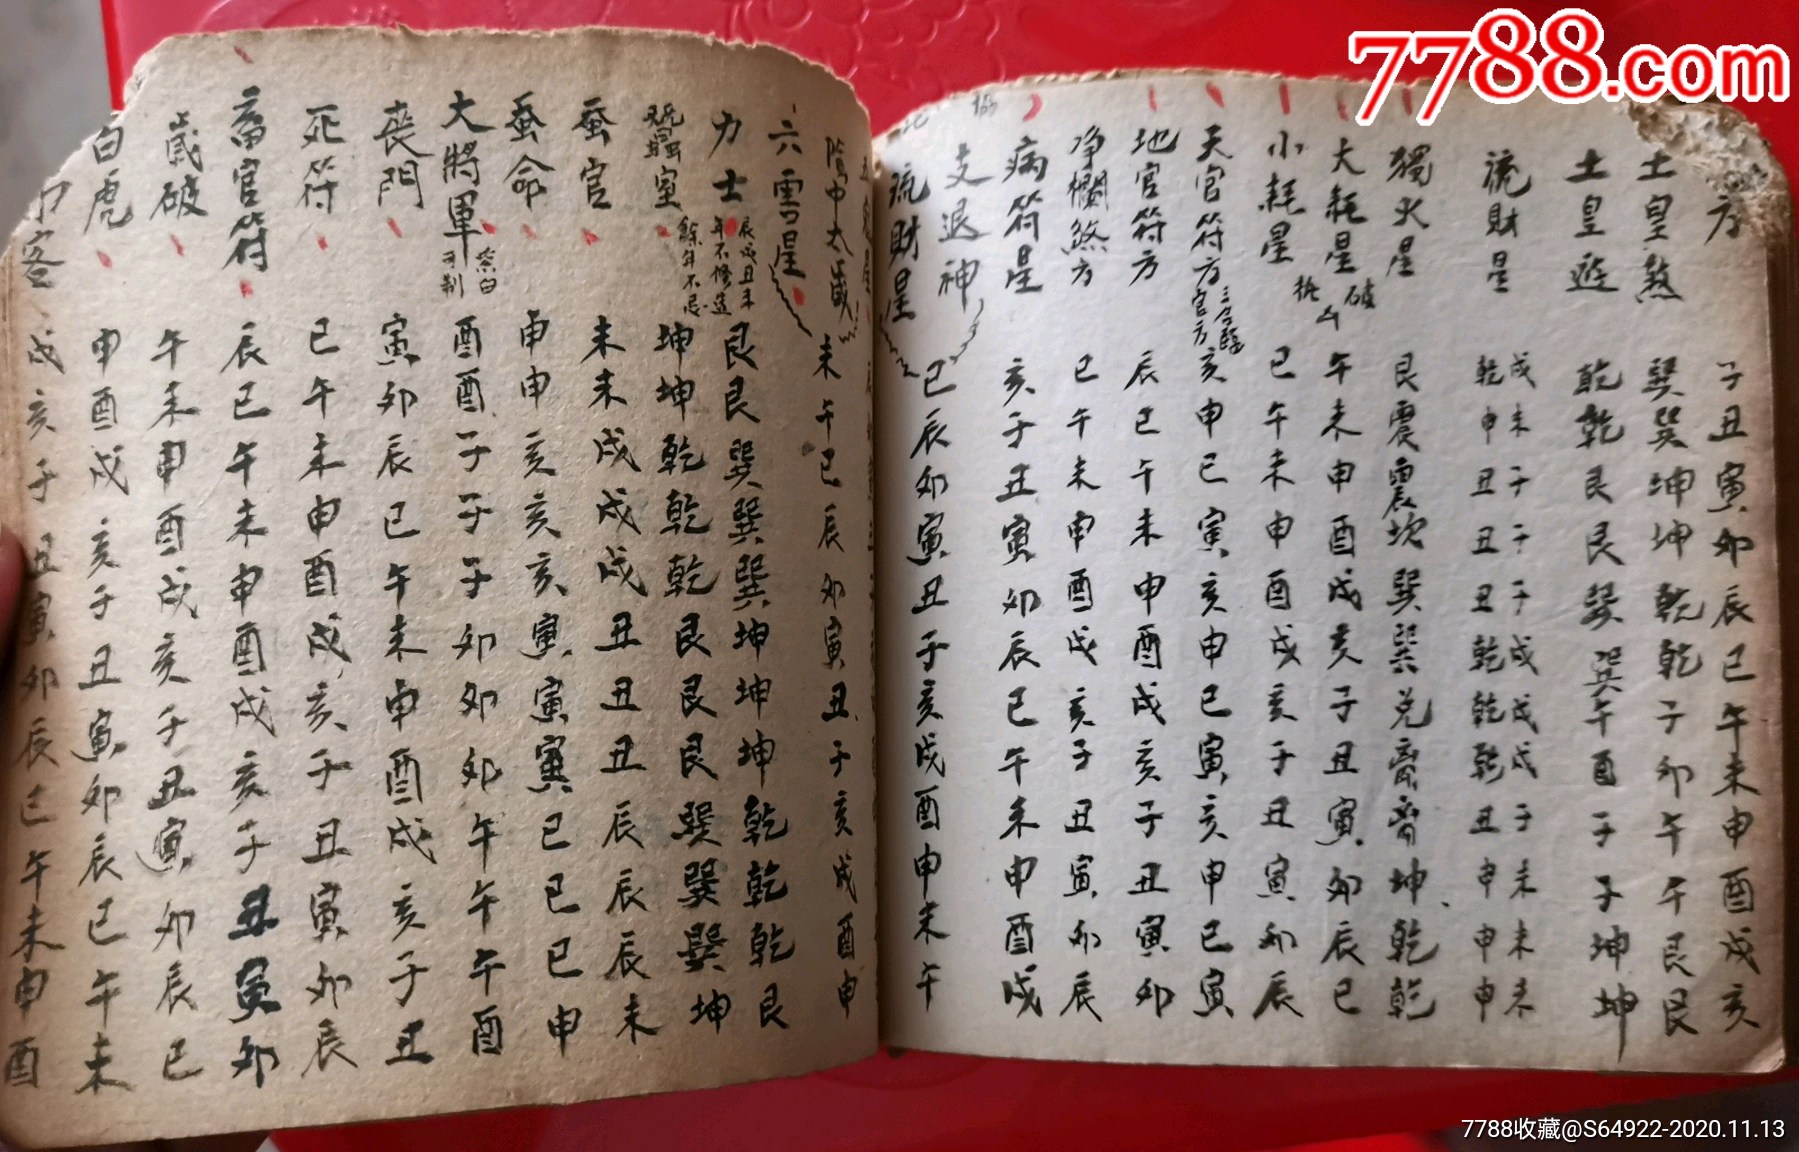 7788.com
方 子丑寅卯辰巳午未申酉戌亥
土皇煞 巽巽坤坤乾乾子卯午午艮艮
土皇遊 乾乾艮艮巽巽午酉子子坤坤
流財星 戌未子子子戌戌戌子未未未
乾申丑丑丑乾乾乾丑申申申
獨火星 艮震震坎巽巽兑离离坤乾乾
大耗星 午未申酉戌亥子丑寅卯辰巳
破
小耗星 巳午未申酉戌亥子丑寅卯辰
天官符方 亥申巳寅亥申巳寅亥申巳寅
官方
地官符方 辰巳午未申酉戌亥子丑寅卯
净欄煞方 巳午未申酉戌亥子丑寅卯辰
病符星 亥子丑寅卯辰巳午未申酉戌
支退神
流財星 巳辰卯寅丑子亥戌酉申未午
陰中太歲 未午巳辰卯寅丑子亥戌酉申
六害星
力士 辰戌丑未年不修造 艮艮巽巽巽坤坤坤乾乾乾艮
蚕室 餘年不忌 坤坤乾乾乾艮艮艮巽巽巽坤
蚕官 未未戌戌戌丑丑丑辰辰辰未
蚕命 申申亥亥亥寅寅寅巳巳巳申
大將軍 紫白可制 酉酉子子子卯卯卯午午午酉
喪門 寅卯辰巳午未申酉戌亥子丑
死符 巳午未申酉戌亥子丑寅卯辰
畜官符 辰巳午未申酉戌亥子丑寅卯
歲破 午未申酉戌亥子丑寅卯辰巳
白虎 申酉戌亥子丑寅卯辰巳午未
客 戌亥子丑寅卯辰巳午未申酉
7788收藏@S64922-2020.11.13